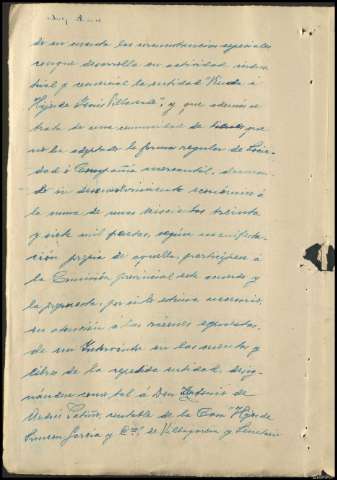 do en cuenta las circunstancias especiales
en que desarrolla su actividad indus-
trial y comercial la entidad "Viuda é
Hijos de Jesús Villaverde", y que además se
trata de una comunidad de bienes que
no ha adoptado la forma regular de Socie-
dad ó Compañía mercantil, 
do su desenvolvimiento económico á
la suma de unas seiscientas treinta
y siete mil pesetas, según manifesta-
ción propia de aquella, participese á
la Comisión provincial este acuerdo y
la propuesta, por si lo estima necesario,
en atención á las razones expuestas,
de un Interventor en las cuentas y
libros de la repetida entidad, desig-
nándose como tal á Don Antonio de
contable de la Casa "Hijos de
Simeón García y Cª" de Villagarcía y